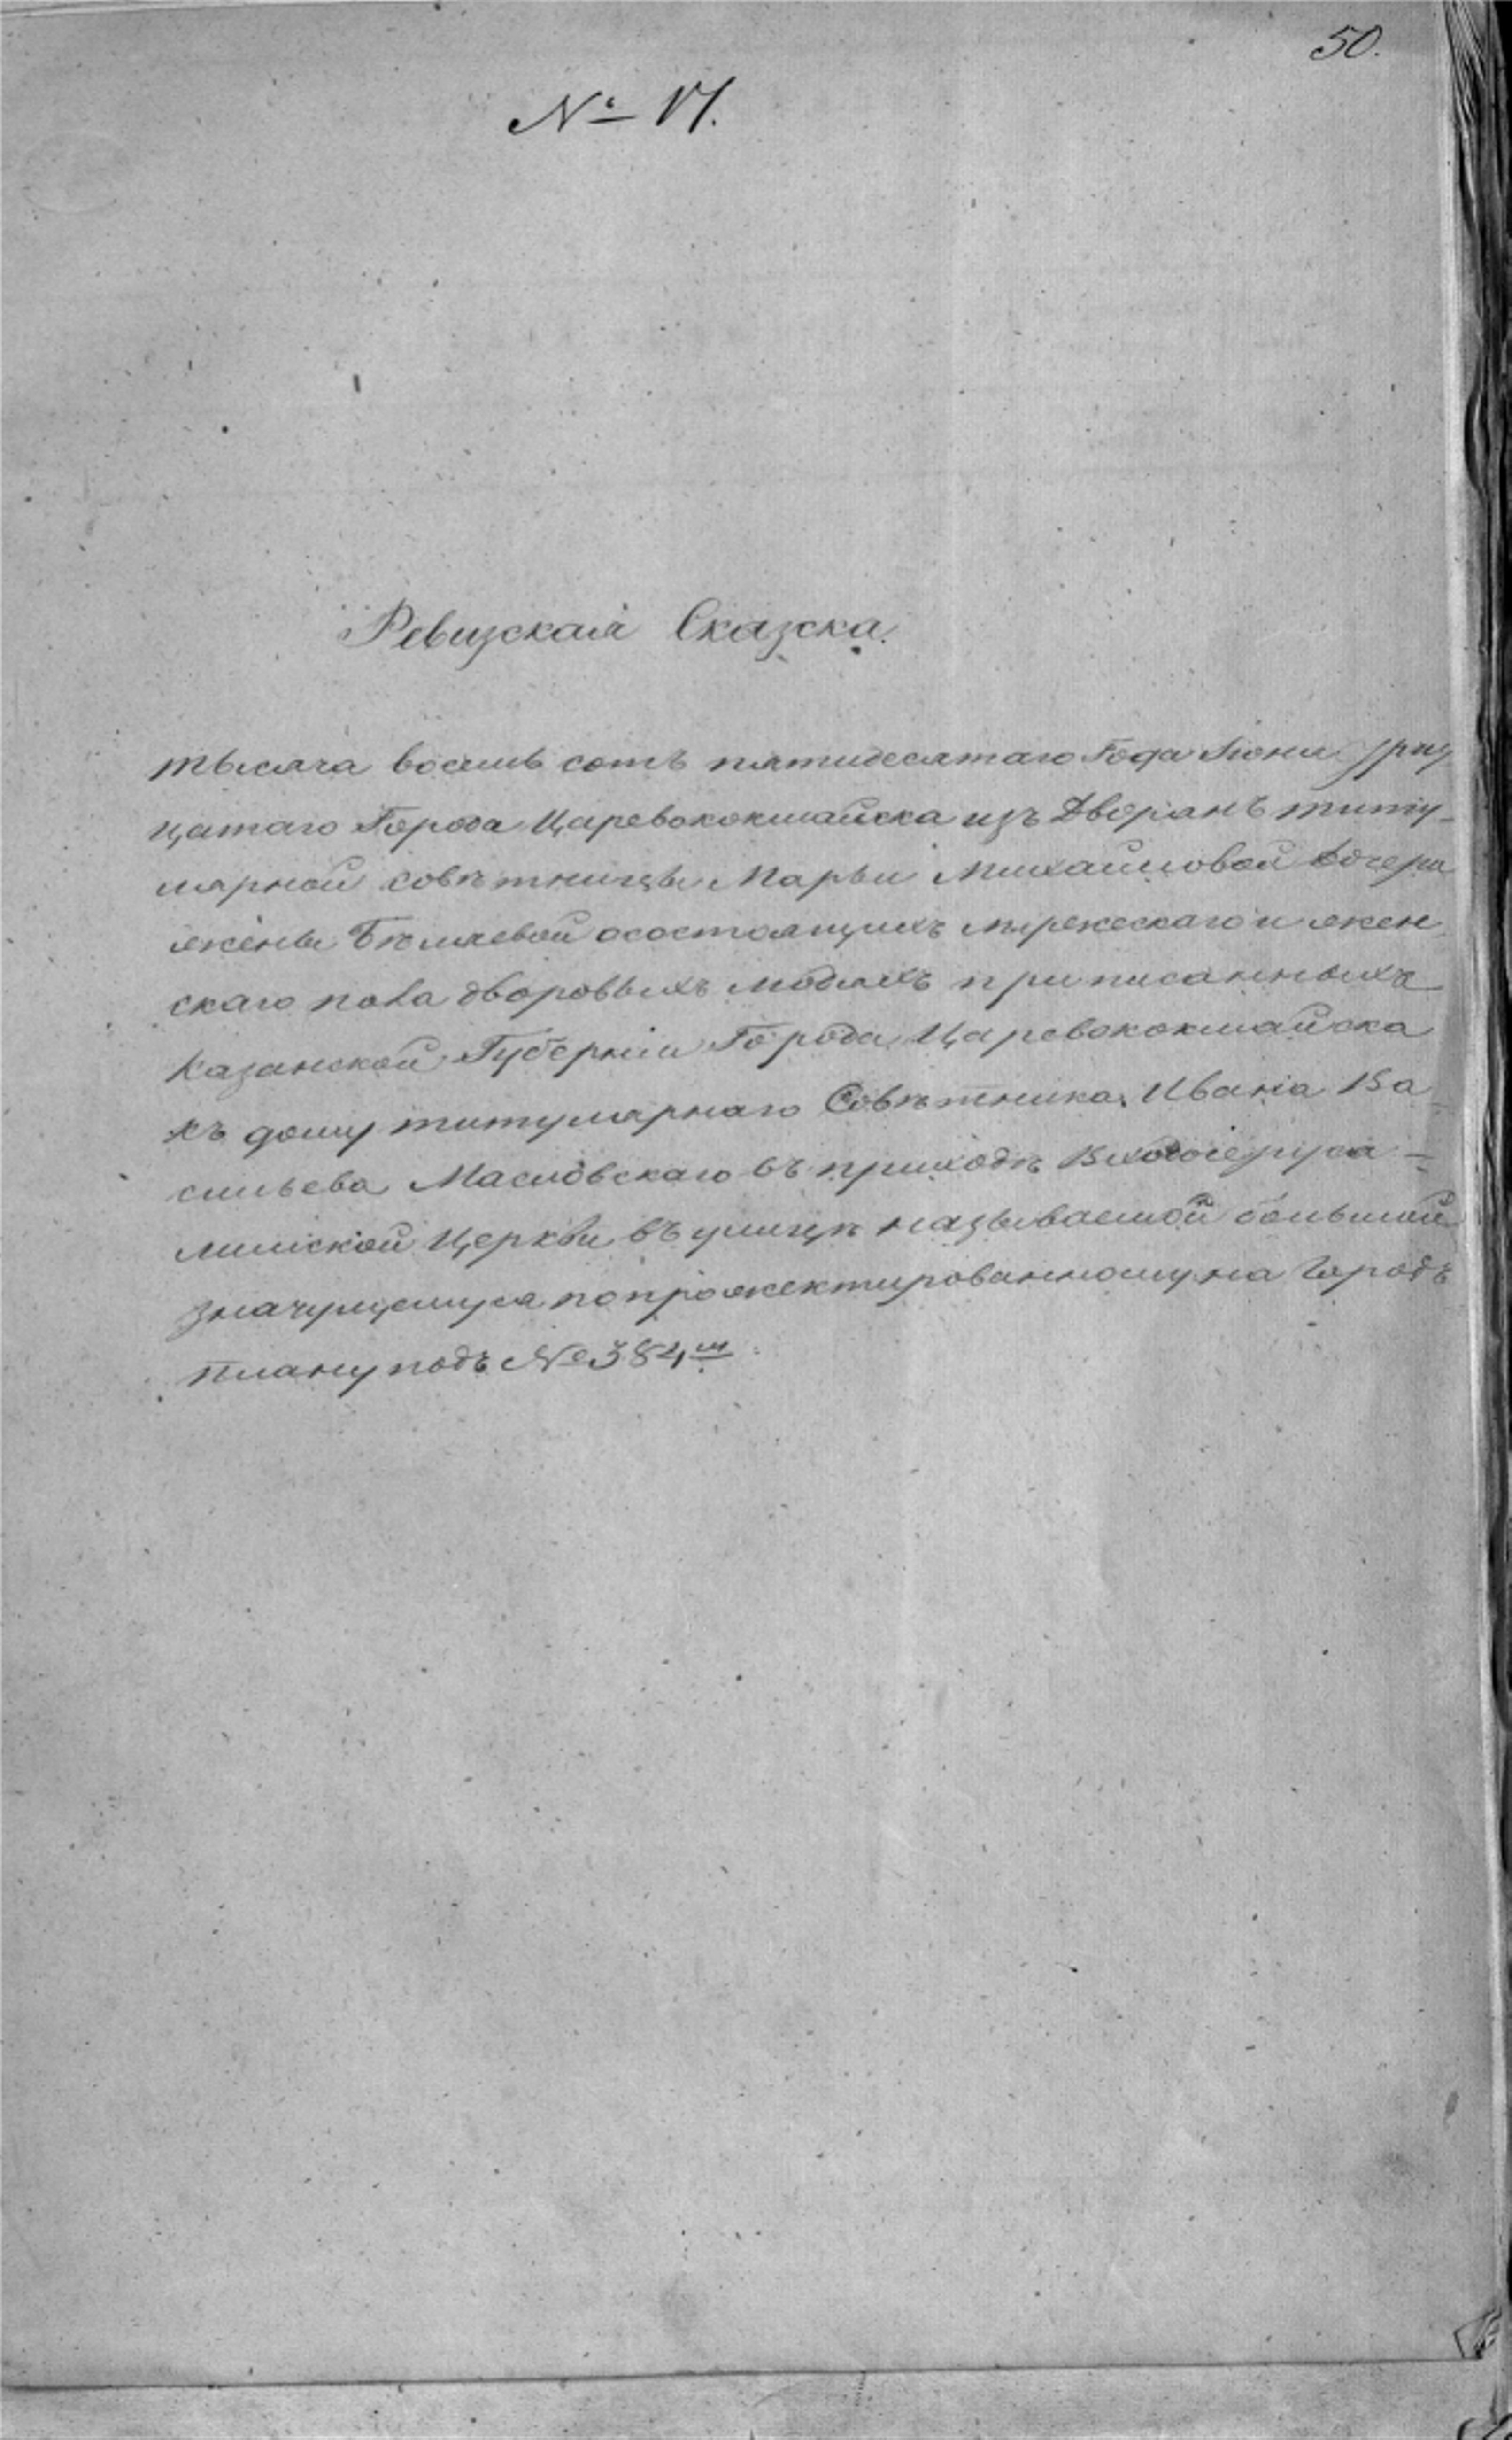 50.
№ 17.
Ревизская Сказска.
тысяча восемь сотъ пятидесятаго Года Июня триц
цатаго Города Царевококшайска изъ Дворянъ титу-
лярной совѣтницы Марьи Михайловой дочери
жены Бѣляевой осостоящихъ мужескаго и жен
скаго пола дворовыхъ людяхъ приписанныхъ
Казанской Губерніи Города Царевококшайска
къ дому титулярнаго Совѣтника Ивана Ва
сильева Масловскаго въ приходѣ Входоіеруса-
лимской Церкви въ улицѣ называемой большой
значущемуся попрожектированному на Городъ
плану подъ № 384м